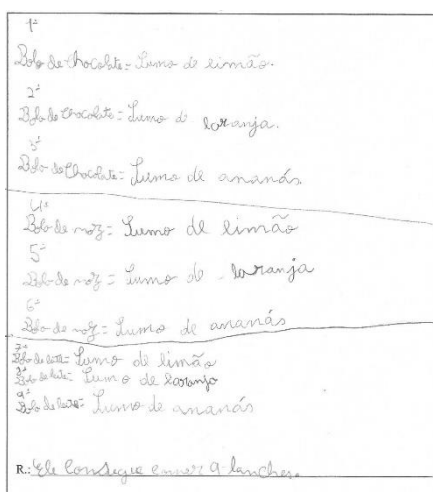 1ª
Bolo de chocolate = Sumo de limão.
2ª
Bolo de chocolate = Sumo de laranja.
3ª
Bolo de Chocolate = Sumo de ananás.
4ª
Bolo de noz = Sumo de limão
5ª
Bolo de noz = Sumo de laranja
6ª
Bolo de noz = Sumo de ananás
7ª
Bolo de leite = Sumo de limão
8ª
Bolo de leite = Sumo de laranja
9ª
Bolo de leite = Sumo de ananás
R.: Ele consegue 9 lanches.